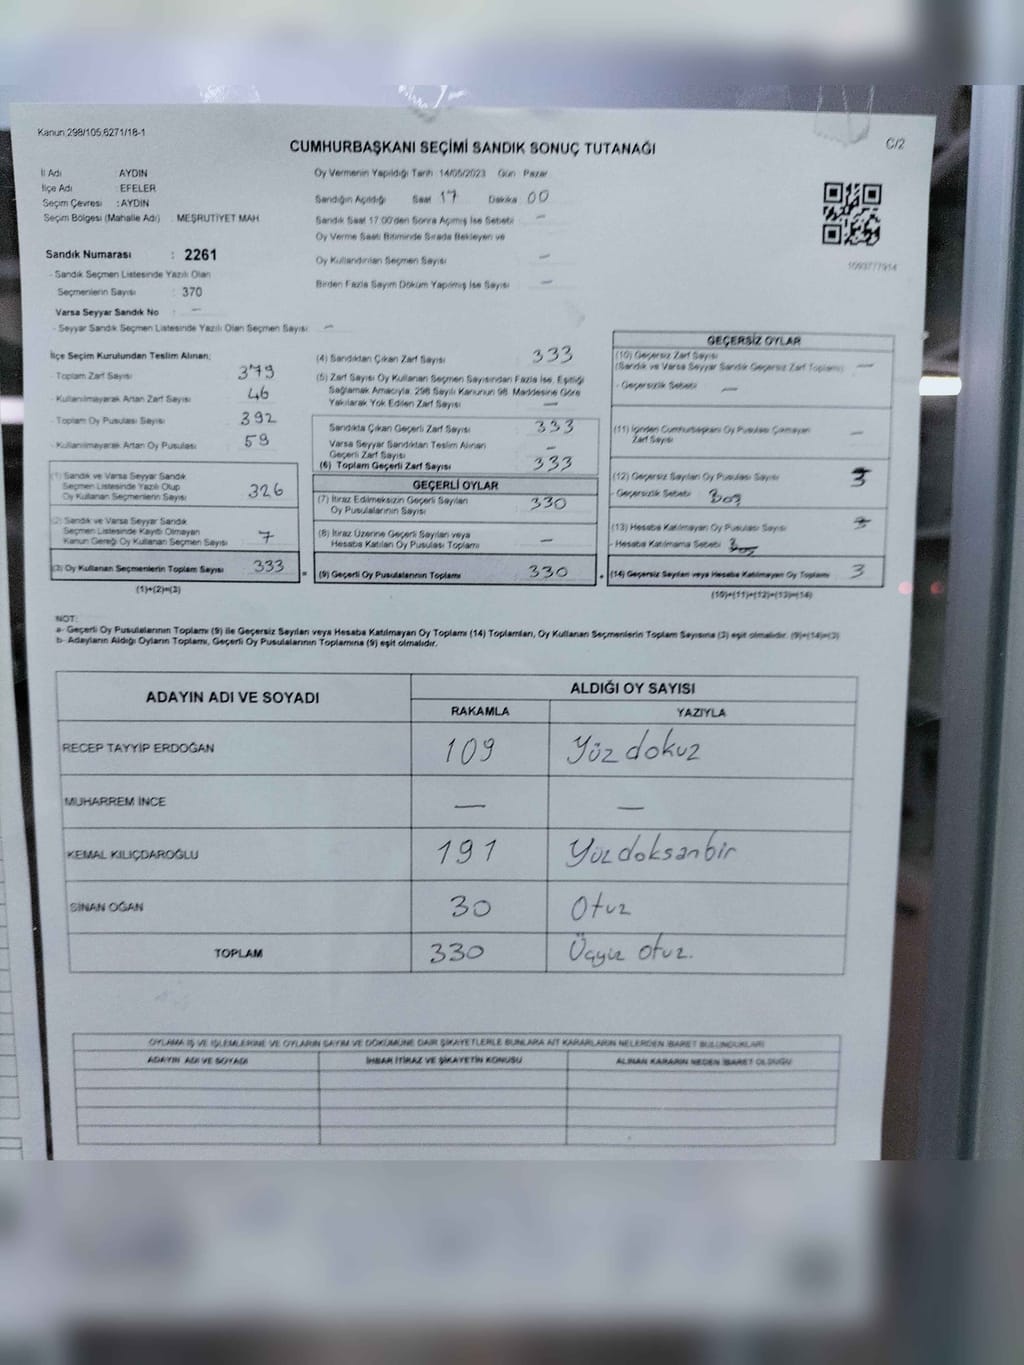 Kanun:298/105;6271/18-1
C/2
CUMHURBAŞKANI SEÇİMİ SANDIK SONUÇ TUTANAĞI
İl Adı : AYDIN
İlçe Adı : EFELER
Seçim Çevresi : AYDIN
Seçim Bölgesi (Mahalle Adı) : MEŞRUTİYET MAH
Sandık Numarası : 2261
- Sandık Seçmen Listesinde Yazılı Olan
Seçmenlerin Sayısı : 370
Varsa Seyyar Sandık No : —
- Seyyar Sandık Seçmen Listesinde Yazılı Olan Seçmen Sayısı —
Oy Vermenin Yapıldığı Tarih 14/05/2023 Gün Pazar
Sandığın Açıldığı Saat 17 Dakika 00
Sandık Saat 17.00'den Sonra Açımış İse Sebebi —
Oy Verme Saati Bitiminde Sırada Bekleyen ve
Oy Kullandırılan Seçmen Sayısı —
Birden Fazla Sayım Döküm Yapılmış İse Sayısı —
1093777914
İlçe Seçim Kurulundan Teslim Alınan;
- Toplam Zarf Sayısı 379
- Kullanılmayarak Artan Zarf Sayısı 46
- Toplam Oy Pusulası Sayısı 392
- Kullanılmayarak Artan Oy Pusulası 59
(1) Sandık ve Varsa Seyyar Sandık
Seçmen Listesinde Yazılı Olup
Oy Kullanan Seçmenlerin Sayısı 326
(2) Sandık ve Varsa Seyyar Sandık
Seçmen Listesinde Kayıtlı Olmayan
Kanun Gereği Oy Kullanan Seçmen Sayısı 7
(3) Oy Kullanan Seçmenlerin Toplam Sayısı 333
(1)+(2)=(3)
(4) Sandıktan Çıkan Zarf Sayısı 333
(5) Zarf Sayısı Oy Kullanan Seçmen Sayısından Fazla İse, Eşitliği
Sağlamak Amacıyla, 298 Sayılı Kanunun 98. Maddesine Göre
Yakılarak Yok Edilen Zarf Sayısı —
Sandıkta Çıkan Geçerli Zarf Sayısı 333
Varsa Seyyar Sandıktan Teslim Alınan
Geçerli Zarf Sayısı —
(6) Toplam Geçerli Zarf Sayısı 333
GEÇERLİ OYLAR
(7) İtiraz Edilmeksizin Geçerli Sayılan
Oy Pusulalarının Sayısı 330
(8) İtiraz Üzerine Geçerli Sayılan veya
Hesaba Katılan Oy Pusulası Toplamı —
(9) Geçerli Oy Pusulalarının Toplamı 330
GEÇERSİZ OYLAR
(10) Geçersiz Zarf Sayısı
(Sandık ve Varsa Seyyar Sandık Geçersiz Zarf Toplamı) —
- Geçersizlik Sebebi —
(11) İçinden Cumhurbaşkanı Oy Pusulası Çıkmayan
Zarf Sayısı —
(12) Geçersiz Sayılan Oy Pusulası Sayısı 3
- Geçersizlik Sebebi Boş
(13) Hesaba Katılmayan Oy Pusulası Sayısı
- Hesaba Katılmama Sebebi Boş
(14) Geçersiz Sayılan veya Hesaba Katılmayan Oy Toplamı 3
(10)+(11)+(12)+(13)=(14)
NOT:
a- Geçerli Oy Pusulalarının Toplamı (9) ile Geçersiz Sayılan veya Hesaba Katılmayan Oy Toplamı (14) Toplamları, Oy Kullanan Seçmenlerin Toplam Sayısına (3) eşit olmalıdır. (9)+(14)=(3)
b- Adayların Aldığı Oyların Toplamı, Geçerli Oy Pusulalarının Toplamına (9) eşit olmalıdır.
ADAYIN ADI VE SOYADI
ALDIĞI OY SAYISI
RAKAMLA YAZIYLA
RECEP TAYYİP ERDOĞAN 109 Yüz dokuz
MUHARREM İNCE — —
KEMAL KILIÇDAROĞLU 191 Yüzdoksanbir
SİNAN OĞAN 30 Otuz
TOPLAM 330 Üçyüz otuz.
OYLAMA İŞ VE İŞLEMLERİNE VE OYLARIN SAYIM VE DÖKÜMÜNE DAİR ŞİKAYETLERLE BUNLARA AİT KARARLARIN NELERDEN İBARET BULUNDUKLARI
ADAYIN ADI VE SOYADI İHBAR İTİRAZ VE ŞİKAYETİN KONUSU ALINAN KARARIN NEDEN İBARET OLDUĞU